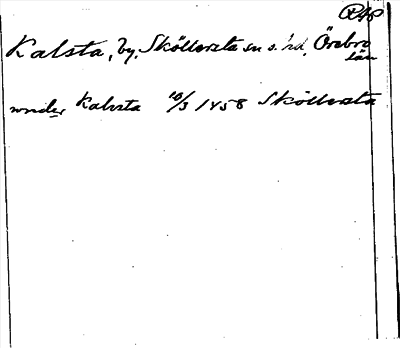 Kalsta, by, Sköllersta sn o. hd, Örebro
län
under Kalsta 10/3 1458 Sköllersta